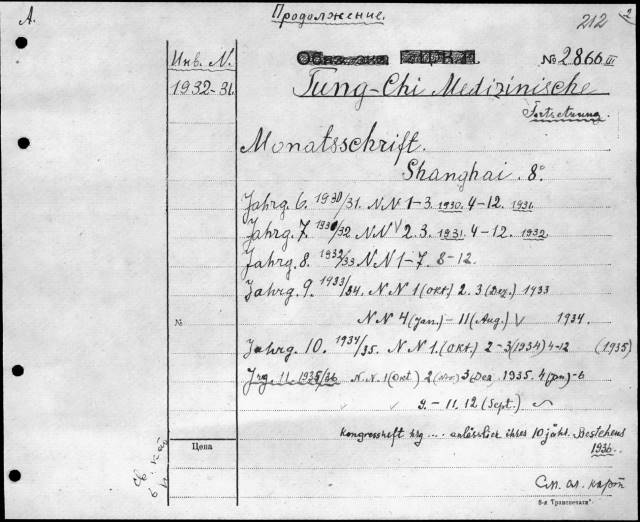 А.
Продолжение.
212
2
Инв. N.
1932-31.
№ 2866 III
Tung-Chi Medizinische
Fortsetzung.
Monatsschrift.
Shanghai. 8°
Jahrg. 6. 1930/31. NN 1-3. 1930. 4-12. 1931.
Jahrg. 7. 1931/32 NN 2. 3. 1931. 4-12. 1932.
Jahrg. 8. 1932/33 NN 1-7. 8-12.
Jahrg. 9. 1933/34. NN 1 (Okt.) 2. 3 (Dez.) 1933
№ NN 4 (Jan.) - 11 (Aug.) 1934.
Jahrg. 10. 1934/35. NN 1. (Okt.) 2-3 (1934) 4-12 (1935)
Jrg. 11. 1935/36. NN. 1 (Okt.) 2 (Nov.) 3 (Dez 1935. 4 -6
9.-11. 12 (Sept.)
Kongressheft hrg ... anlässlich ihres 10 jähr. Bestehens
1936.
Цена
См. ал. карт
6-я Транспечати".